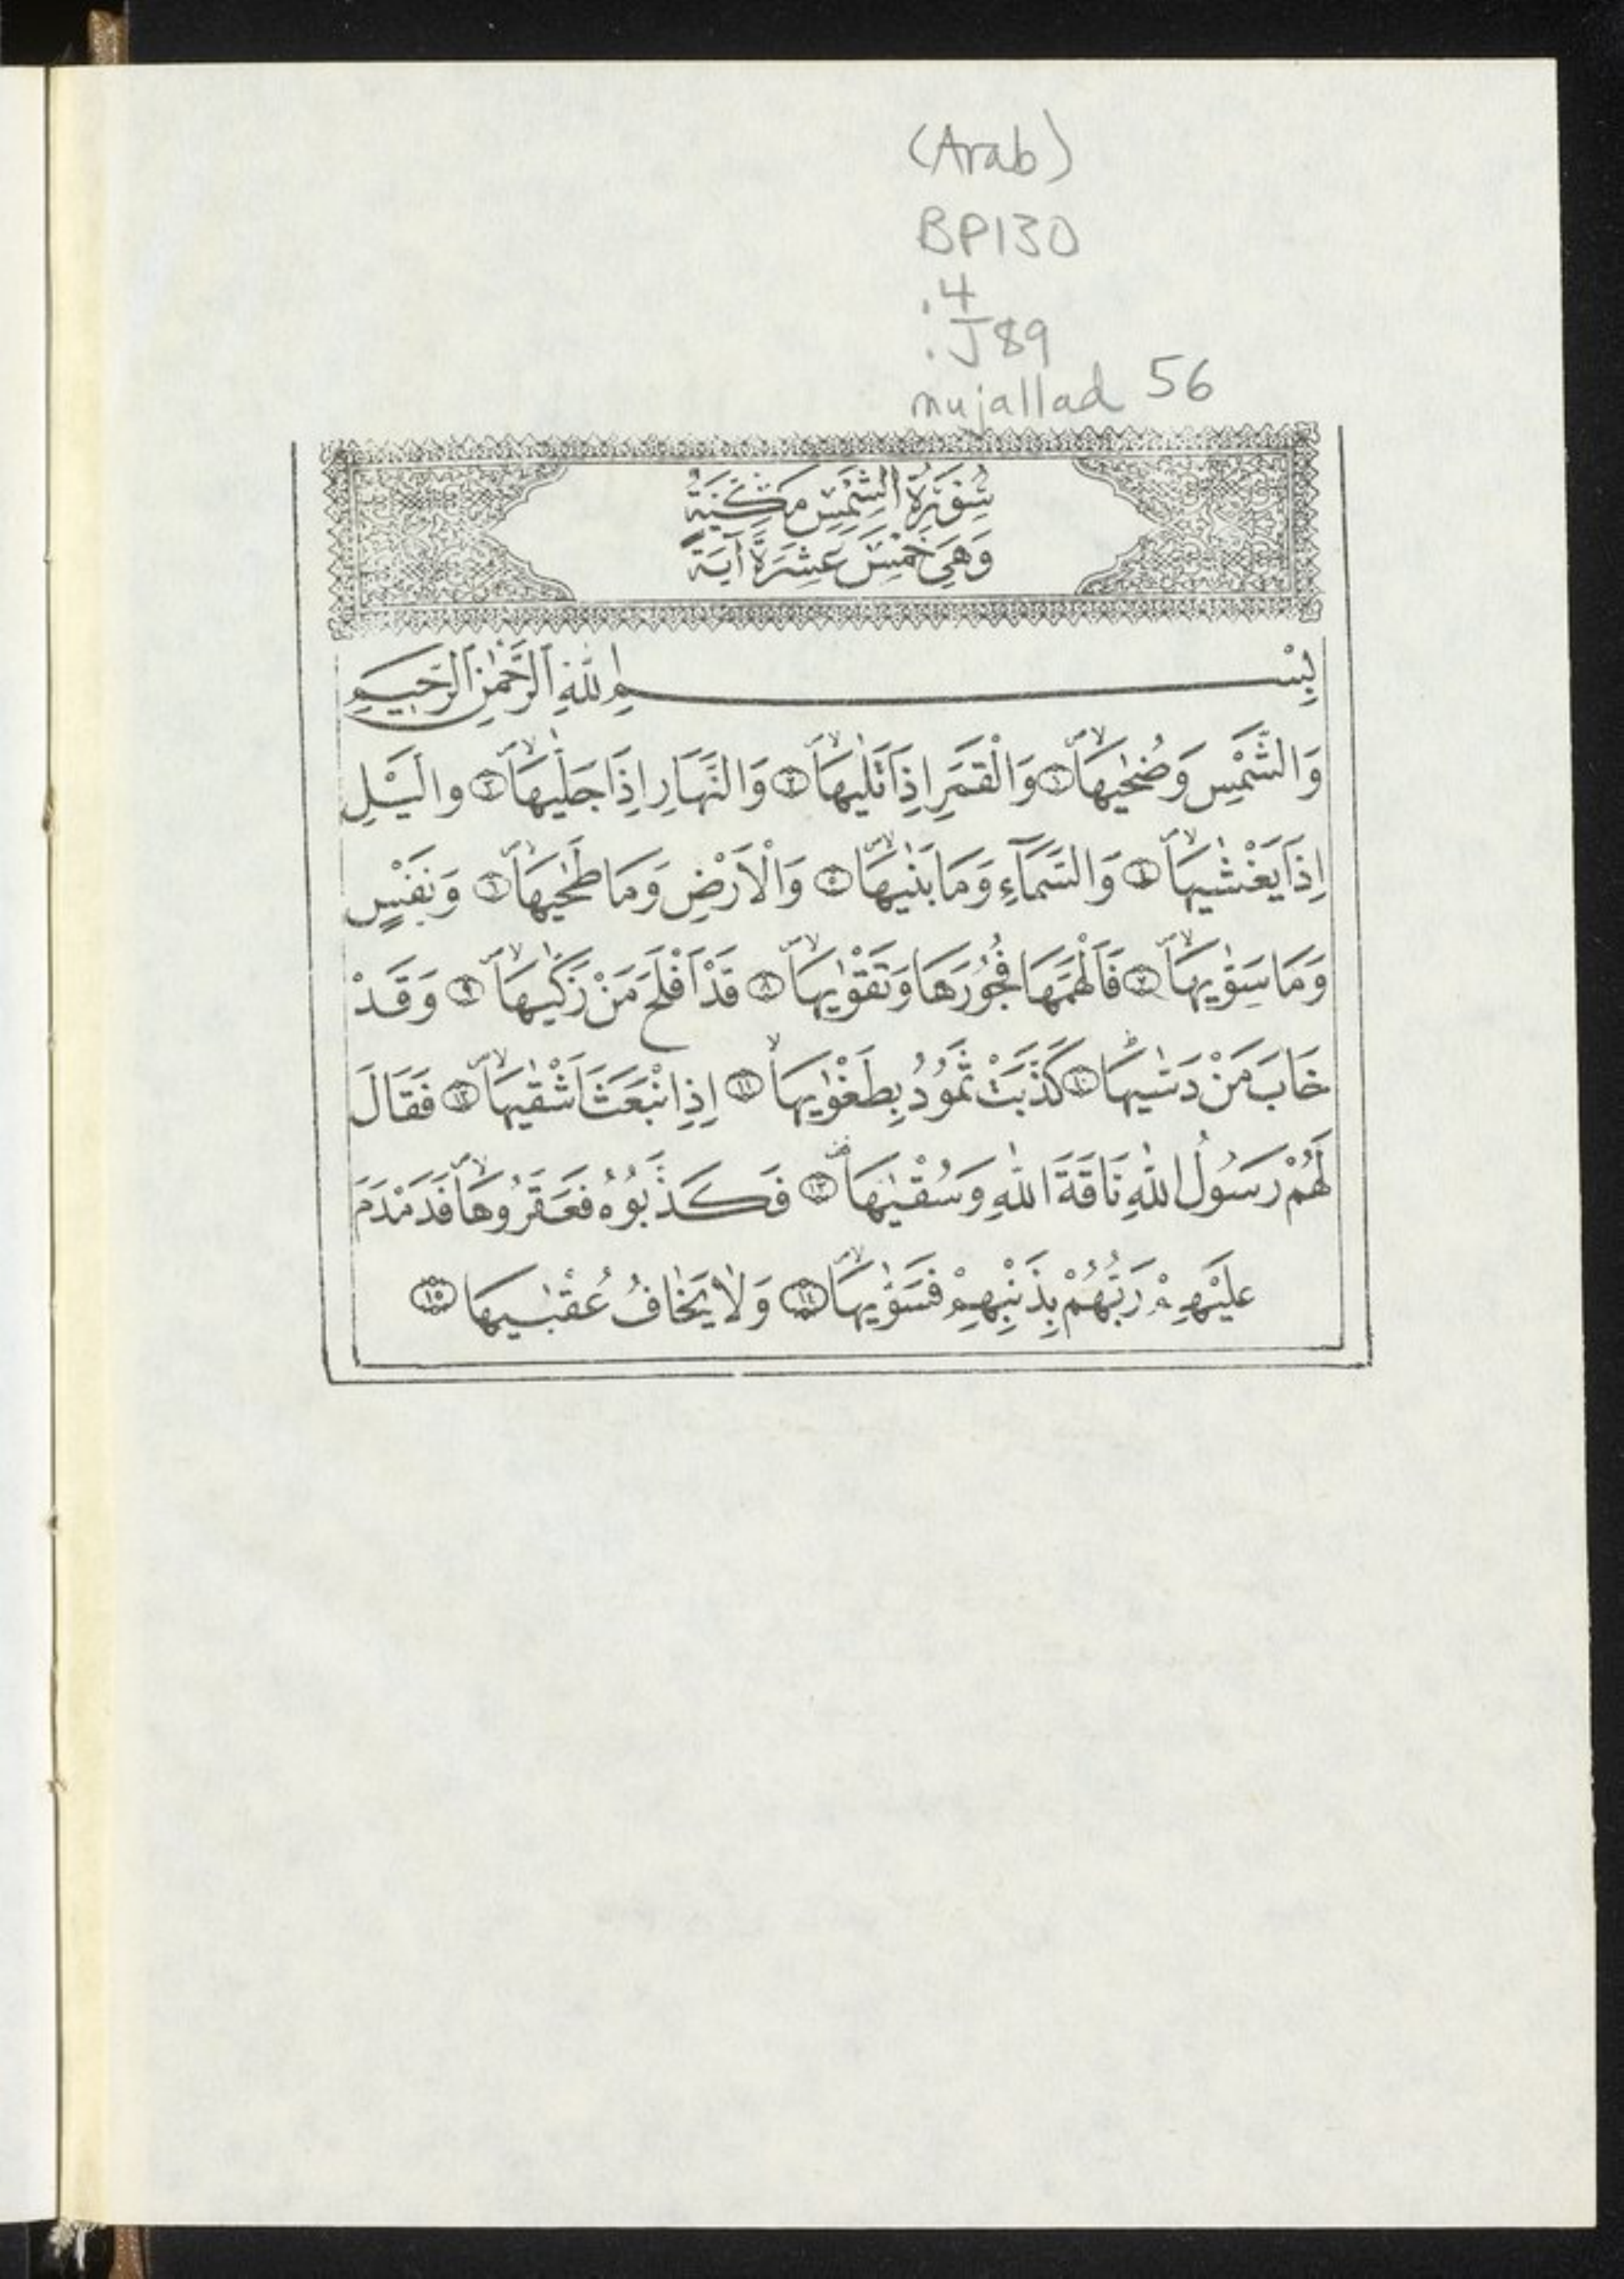 (Arab)
BP130
.4
.J89
mujallad 56
سُورَةُ الشَّمْسِ مَكِّيَّةٌ
وَهِيَ خَمْسَ عَشْرَةَ آيَةً
بِسْمِ اللّٰهِ الرَّحْمٰنِ الرَّحِيمِ
وَالشَّمْسِ وَضُحٰيهَاۙ ﴿١﴾ وَالْقَمَرِ اِذَا تَلٰيهَاۙ ﴿٢﴾ وَالنَّهَارِ اِذَا جَلّٰيهَاۙ ﴿٣﴾ والَّيْلِ
اِذَا يَغْشٰيهَاۙ ﴿٤﴾ وَالسَّمَآءِ وَمَا بَنٰيهَاۙ ﴿٥﴾ وَالْاَرْضِ وَمَا طَحٰيهَاۙ ﴿٦﴾ وَنَفْسٍ
وَمَا سَوّٰيهَاۙ ﴿٧﴾ فَاَلْهَمَهَا فُجُورَهَا وَتَقْوٰيهَاۙ ﴿٨﴾ قَدْ اَفْلَحَ مَنْ زَكّٰيهَاۙ ﴿٩﴾ وَقَدْ
خَابَ مَنْ دَسّٰيهَاۜ ﴿١٠﴾ كَذَّبَتْ ثَمُودُ بِطَغْوٰيهَاۙ ﴿١١﴾ اِذِ انْبَعَثَ اَشْقٰيهَاۙ ﴿١٢﴾ فَقَالَ
لَهُمْ رَسُولُ اللّٰهِ نَاقَةَ اللّٰهِ وَسُقْيٰهَاۜ ﴿١٣﴾ فَكَذَّبُوُهُ فَعَقَرُوهَاۙ فَدَمْدَمَ
عَلَيْهِمْ رَبُّهُمْ بِذَنْبِهِمْ فَسَوّٰيهَاۙ ﴿١٤﴾ وَلَا يَخَافُ عُقْبٰيهَا ﴿١٥﴾